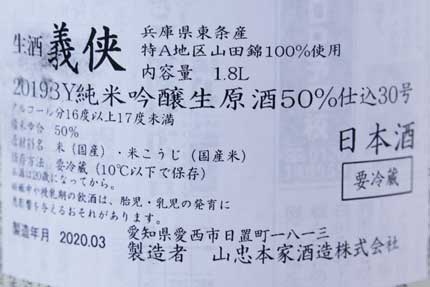 生酒 義侠
兵庫県東条産
特A地区山田錦100%使用
内容量 1.8L
2019BY純米吟醸生原酒50%仕込30号
アルコール分16度以上17度未満
精米歩合 50%
原材料名 米(国産)・米こうじ(国産米)
保存方法 要冷蔵(10℃以下で保存)
お酒は20歳になってから。
妊娠中や授乳期の飲酒は、胎児・乳児の発育に
悪影響を与えるおそれがあります。
日本酒
要冷蔵
製造年月 2020.03
愛知県愛西市日置町一八一三
製造者 山忠本家酒造株式会社